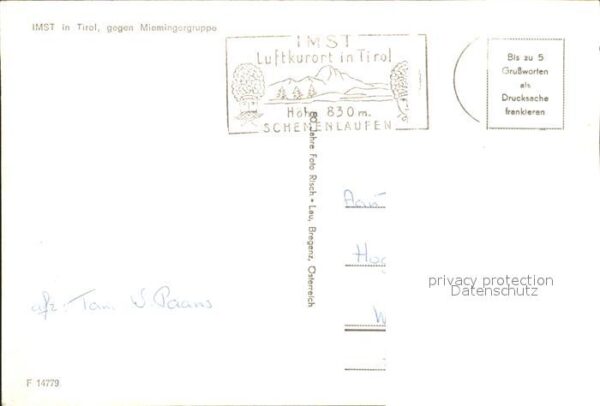 IMST in Tirol, gegen Miemingergruppe
IMST
Luftkurort in Tirol
Höhe 830 m.
SCHEMENLAUFEN
Bis zu 5
Grußworten
als
Drucksache
frankieren
80 Jahre Foto Risch - Lau, Bregenz, Österreich
privacy protection
Datenschutz
afz: Tam. V. Paans
F 14779